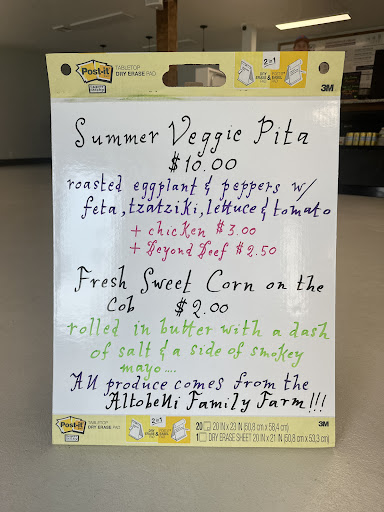 Post-it
TABLETOP
DRY ERASE PAD
2 in 1
DRY ERASE & EASEL PAD
3M
Summer Veggie Pita
$10.00
roasted eggplant & peppers w/
feta, tzatziki, lettuce & tomato
+ chicken $3.00
+ Beyond Beef $2.50
Fresh Sweet Corn on the
Cob $2.00
rolled in butter with a dash
of salt & a side of smokey
mayo....
All produce comes from the
Altobelli Family Farm!!!
Post-it
TABLETOP
DRY ERASE PAD
2 in 1
20 20 IN x 23 IN (50,8 cm x 58,4 cm)
1 DRY ERASE SHEET 20 IN x 21 IN (50,8 cm x 53,3 cm)
3M